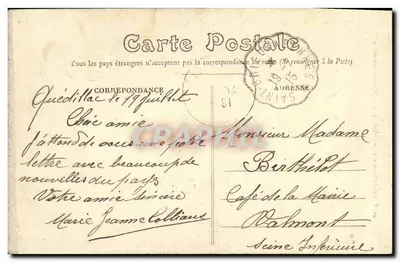 Carte Postale
Tous les pays étrangers n'acceptent pas la correspondance au recto (Se renseigner à la Poste)
CORRESPONDANCE
ADRESSE
Quédillac le 19 juillet
Chère amie
J'attend de vous une
lettre avec beaucoup de
nouvelles du pays
Votre amie sincère
Marie Jeanne
Monsieur Madame
Berthélot
Café de la Mairie
Valmont
Seine Inférieure